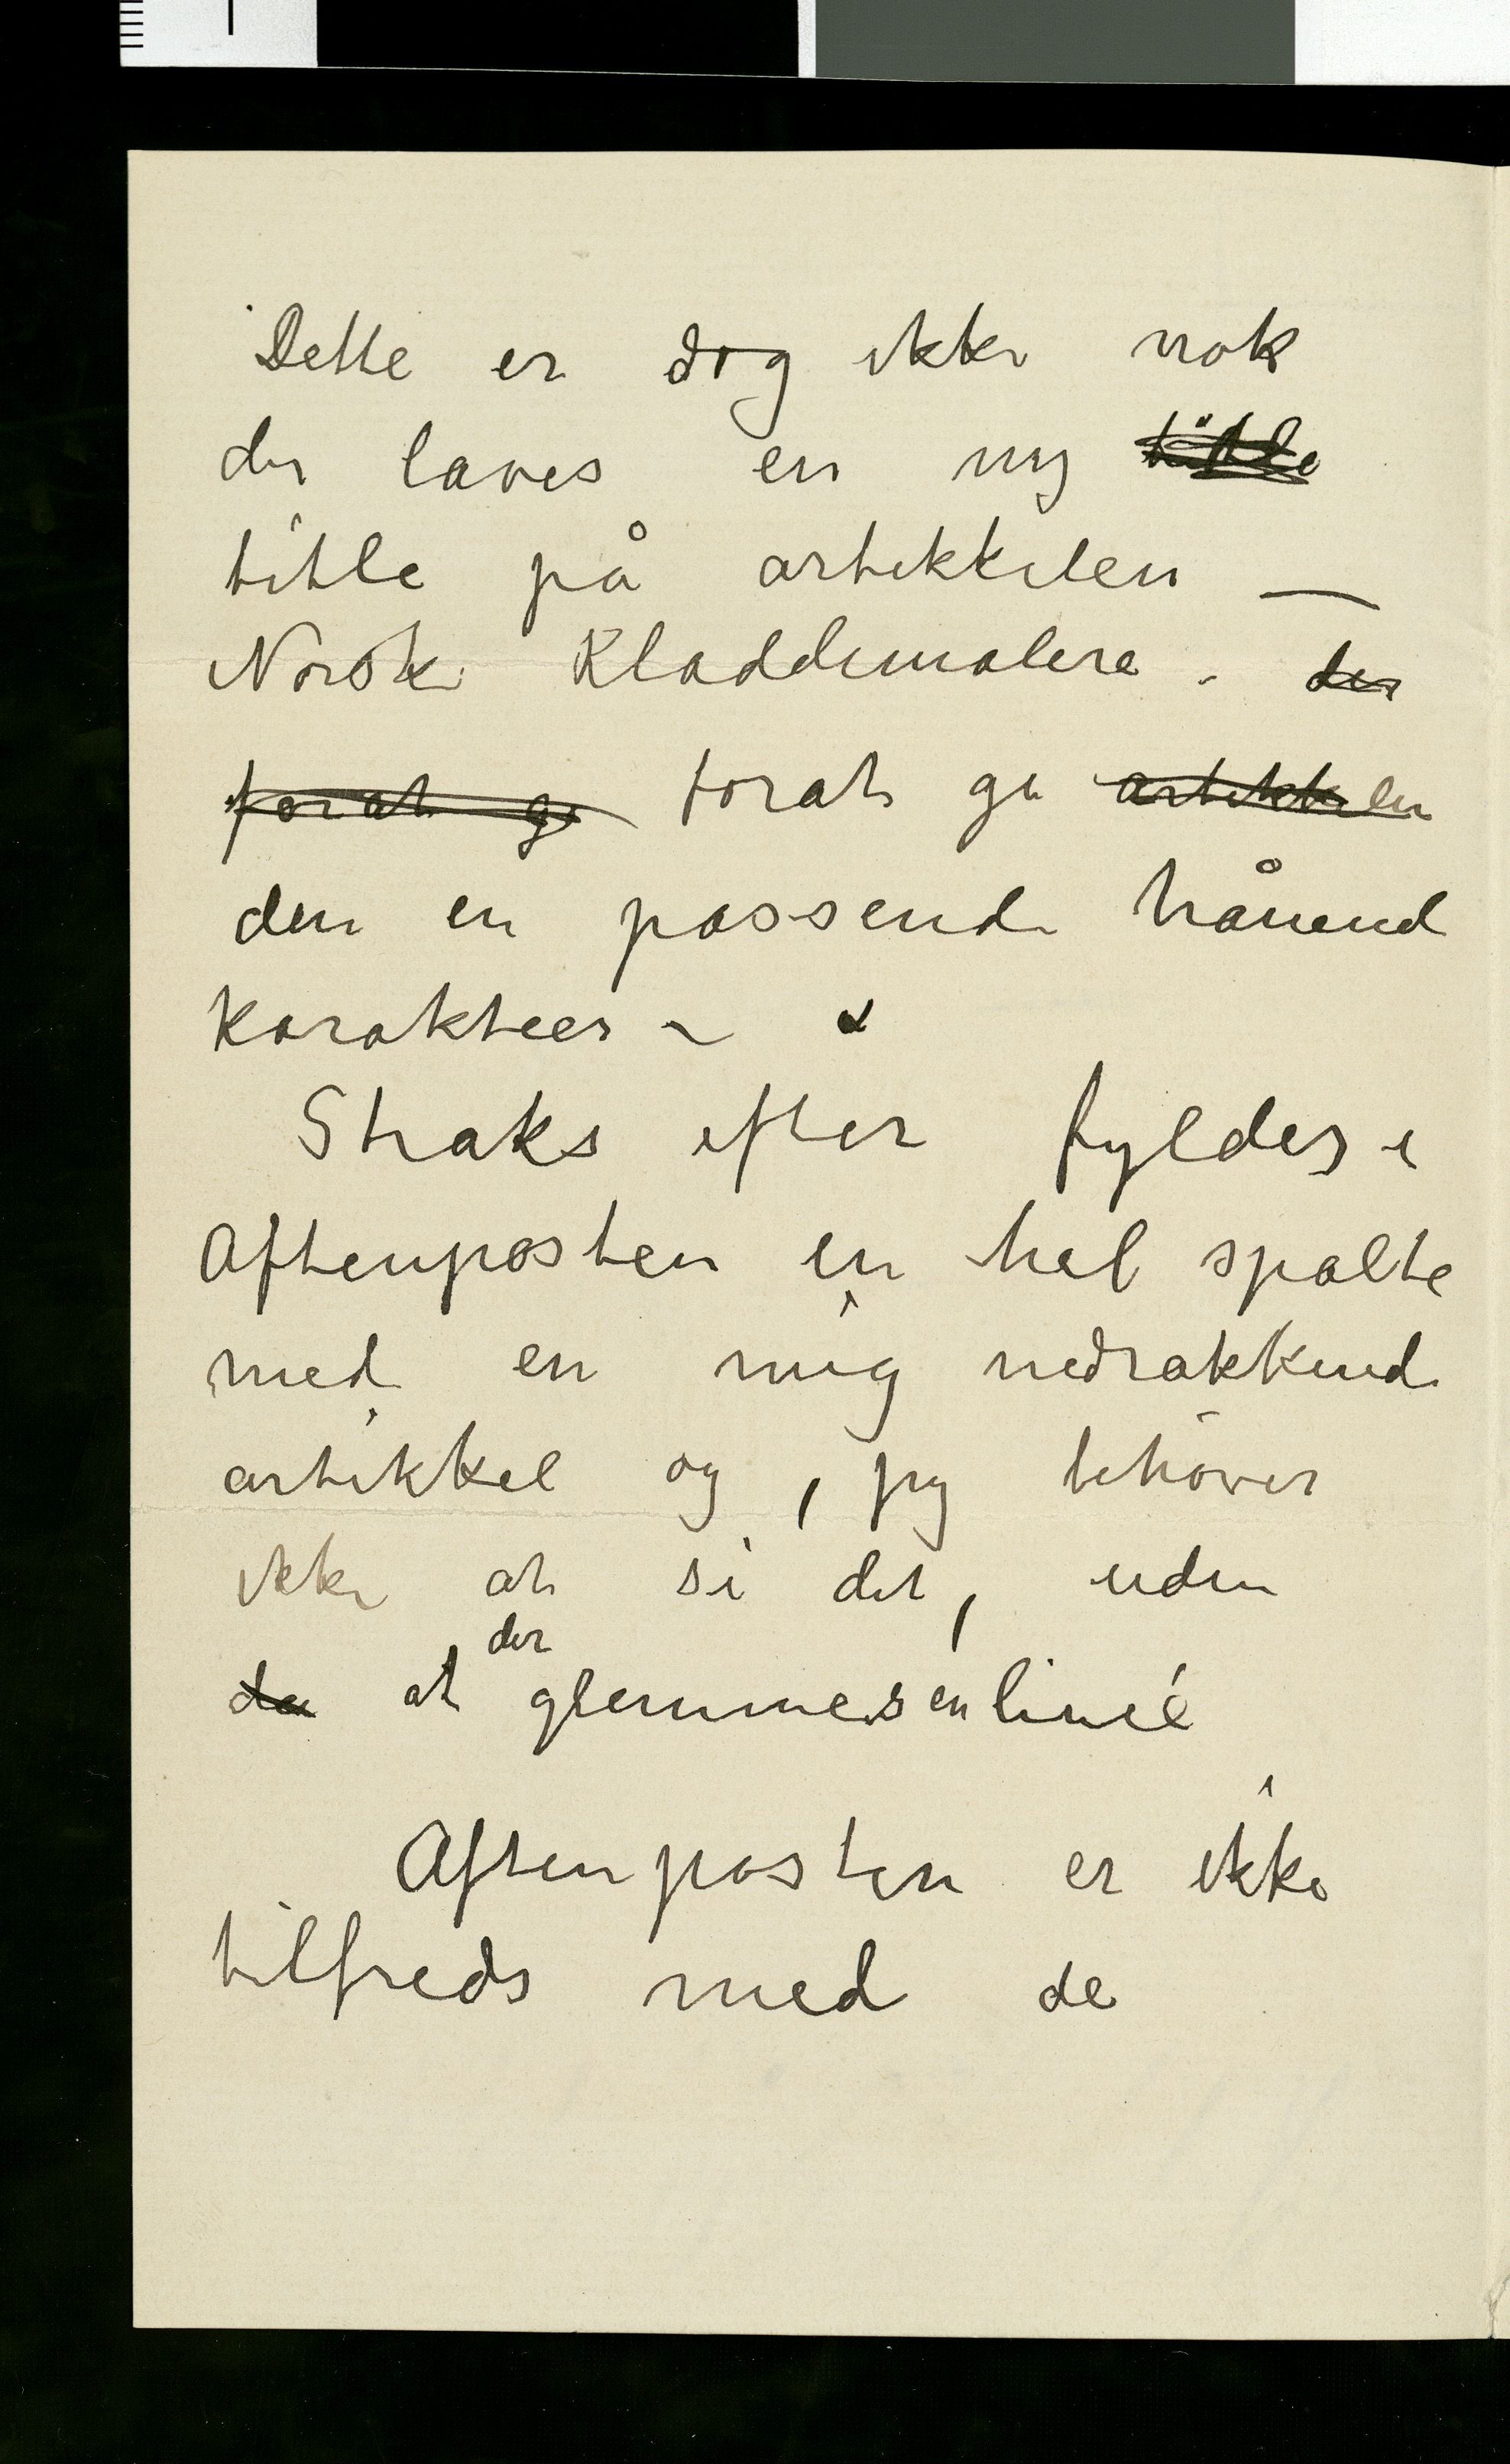 Dette er dog ikke nok
der laves en ny title
title på artikkelen —
Norske Kladdemalere - der
forat gi forat gi artikkelen
den en passende hånend
Karakteer –
Straks efter fyldes i
Aftenposten en hel spalte
med en mig nedrakkende
artikkel og, jeg behøver
ikke at si det, uden
da at der glemmes en linie
Aftenposten er ikke
tilfreds med de